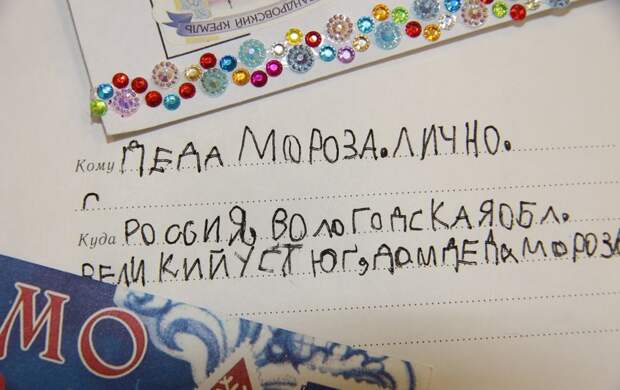 АНДРОВСКИЙ КРЕМЛЬ
Кому ДЕДА МОРОЗА. ЛИЧНО.
Куда РОССИЯ, ВОЛОГОДСКАЯ ОБЛ.
ВЕЛИКИЙ УСТЮГ, ДОМ ДЕДА МОРОЗА
МО